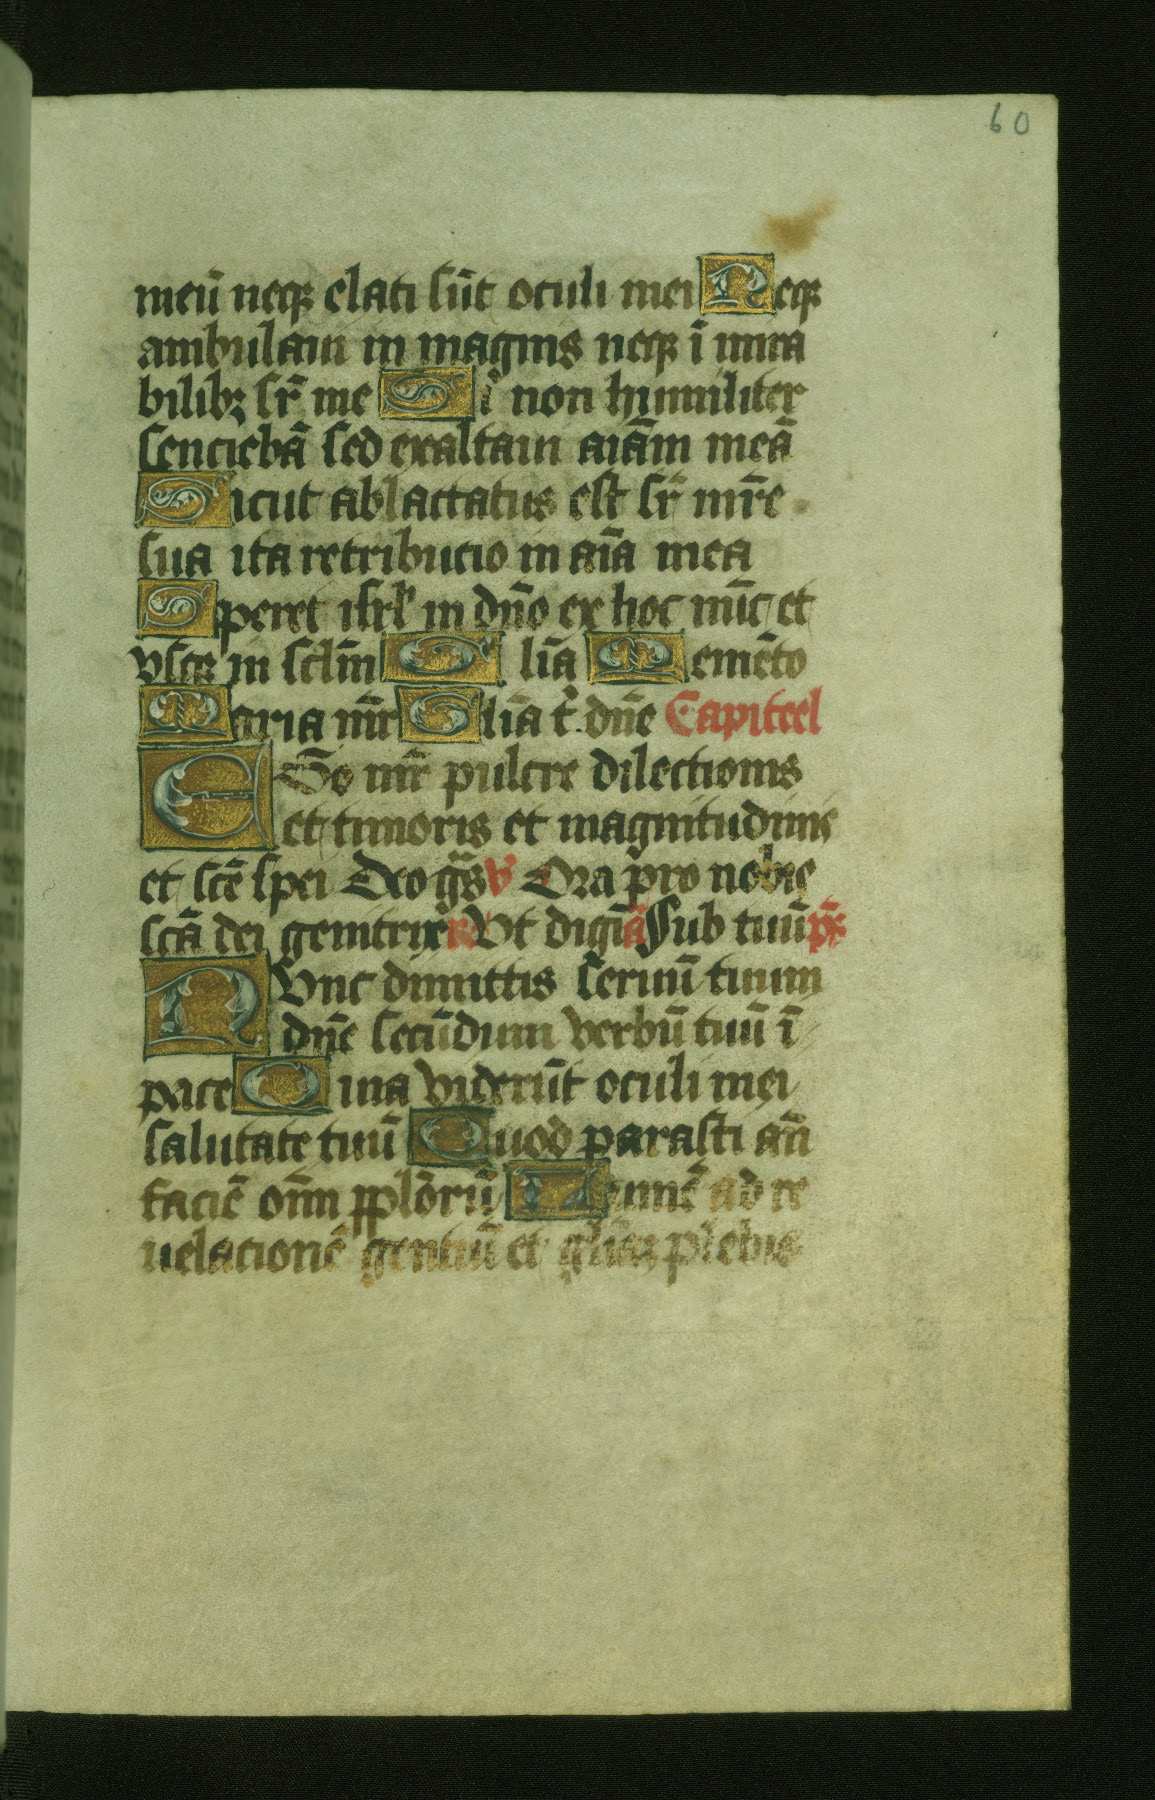 60
meū neqꝫ elati sūt oculi mei Neqꝫ
ambulaui in magnis neqꝫ ī mira
bilibꝫ sr̄ me Si non humiliter
senciebā sed exaltaui aiām meā
Sicut ablactatus est sr̄ mr̄e
sua ita retribucio in aīa mea
Speret isrl̄ in dn̄o ex hoc nūc et
vsqꝫ in sclm̄ Glīa Memēto
Maria mr̄ Glīa t̄ dn̄e Capiteel
Ego mr̄ pulcre dilectionis
et timoris et magnitudinis
et scē spei Deo gr̄as v Ora pro nobis
scā dei genitrix R Vt dignī a Sub tuū ps̄
Nunc dimittis seruū tuum
dn̄e secūdum verbū tuū ī
pace Quia viderūt oculi mei
salutate tuū Quod parasti an̄
faciē oīm pplōrū Lumē ad re
uelacionē gentiū et glīaꝫ plebis